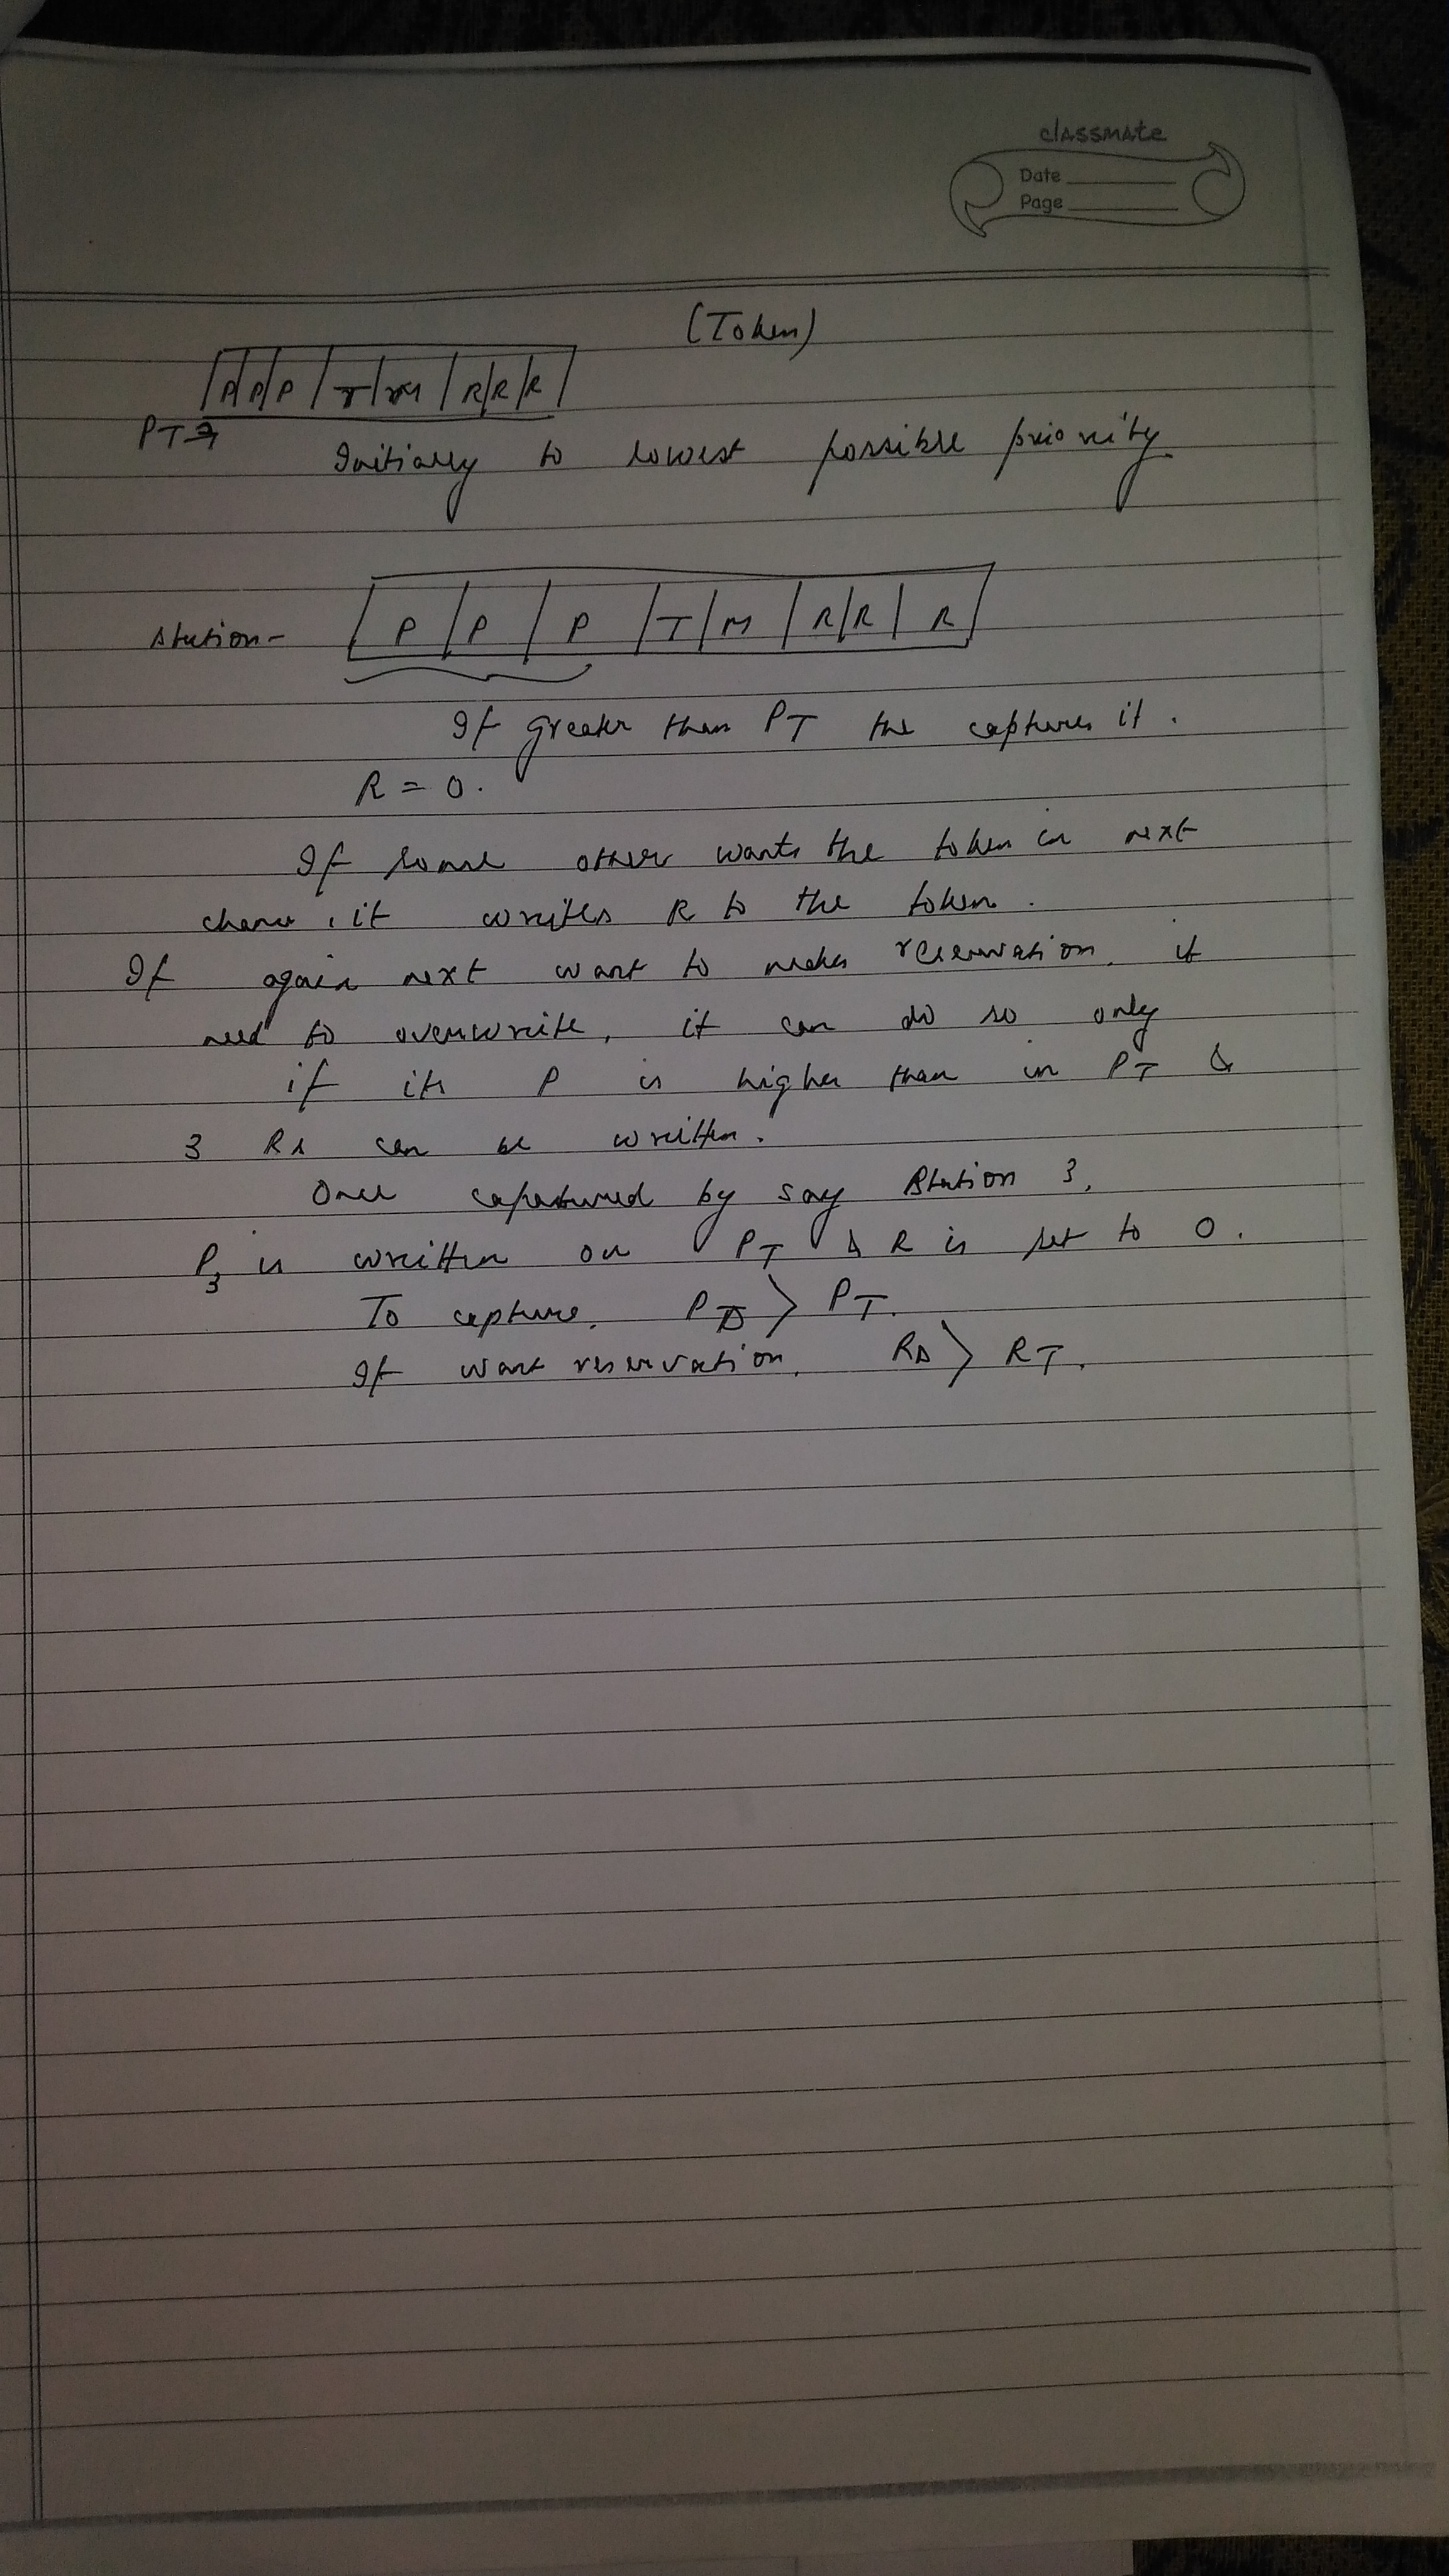 classmate
Date
Page
(Token)
P P P T M R R R
PT →
Initially to lowest possible priority
Station - P P P T M R R R
If greater than PT the captures it.
R = 0.
If some other wants the token in next
chance, it writes R to the token.
If again next want to makes reservation, it
need to overwrite, it can do so only
if its P is higher than in PT &
3 Rs can be written.
Once captured by say Station 3,
P3 is written on PT & R is set to 0.
To capture, PS > PT.
If want reservation, RS > RT.